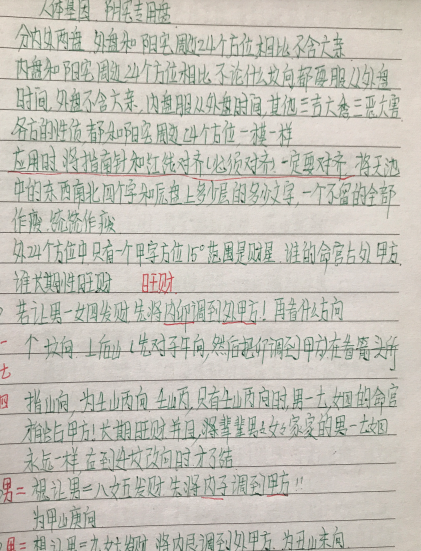 人体基因 阴宅专用盘
分内外两盘 外盘和阳宅周边24个方位相比不含六亲
内盘和阳宅周边24个方位相比不论什么坟向都要服从外盘
时间,外盘不含六亲,内盘服从外盘时间,其他三吉六秀三恶大害
各方的性质都和阳宅周边24个方位一模一样
应用时将指南针和红线对齐(必须对齐)一定要对齐,将天池
中的东西南北四个字和底盘上多少层的多少文字,一个不留的全部
作废,统统作废
外24个方位中只有一个甲字方位15°范围是财星 谁的命宫占外甲方
谁长期性旺财 旺财
若让男一女四发财先将内卯调到外甲方!再看什么方向
一个坟向 上后山(先对子午向,然后把卯调到甲方)在看箭头所
指山向,为壬山丙向 壬山丙,只有壬山丙向时,男一七女四的命宫
才能占甲方!长期旺财并且,将辈辈男女家爱的男一七女四
永远一样,直到迁坟改向时才了结
男二 想让男二八女五发财 先将内子调到甲方!!
为甲山庚向
男三 想让男三九女六发财 将内 调到外甲方,为丑山未向